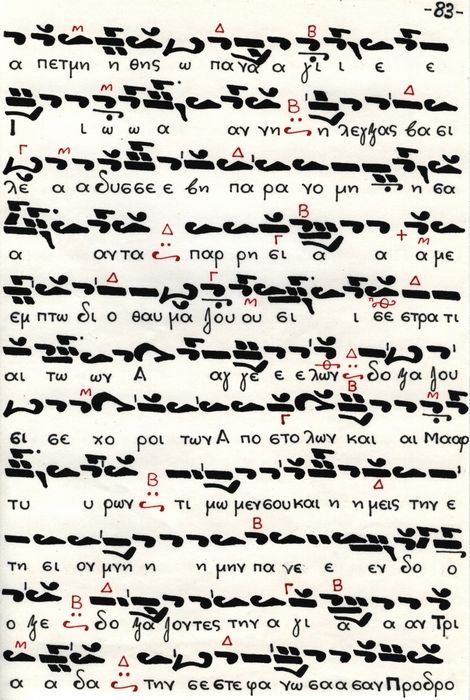 -83-
α πετμη η θης ω παγα α γι ι ε ε
Ι ι ω ω α αγ γη η λεγξας βα σι
λε α α δυσσε ε βη πα ρα νο μη η σα
α αγ τα παρ ρη σι α α α με
εμ πτω δι ο θαυ μα ζου ου σι ι σε στρα τι
αι τω ων Α αγ γε ε ε λων δο ξα ζου
σι σε χο ροι των Α πο στο λων και αι Μααρ
τυ υ ρων τι μω μεν σου και η η μεις την ε
τη σι ον μνη η η μην πα νε ε εν δο ο
ο ξε δο ξα ζοντες την α γι α α αν Τρι
α α δα την σε στε φα νω σα α σαν Προδρο